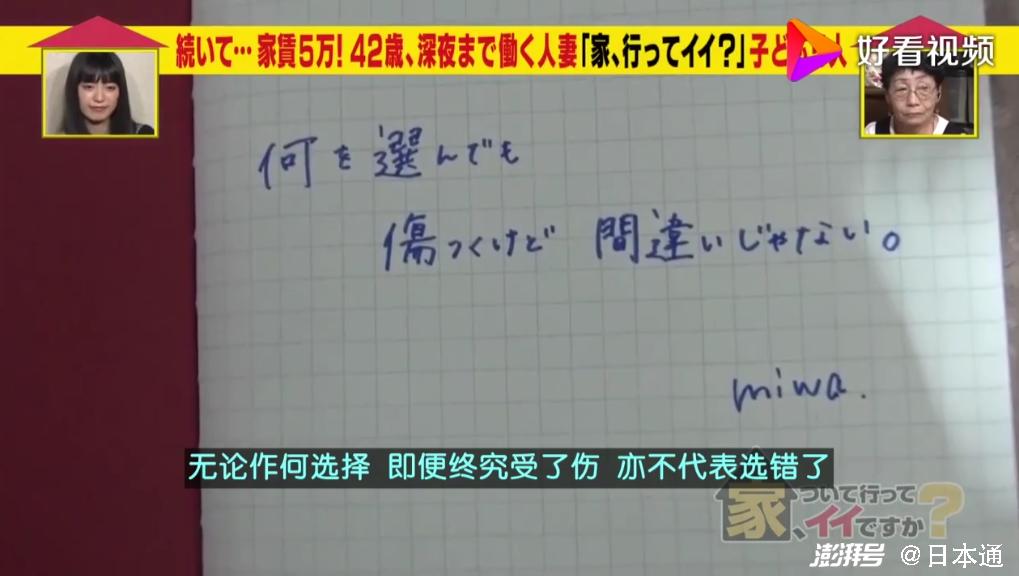 続いて… 家賃5万! 42歳、深夜まで働く人妻「家、行ってイイ?」子ど
人
好看视频
何を選んでも
傷つくけど 間違いじゃない。
miwa.
无论作何选择 即便终究受了伤 亦不代表选错了
家、ついて行ってイイですか?
澎湃号 @日本通